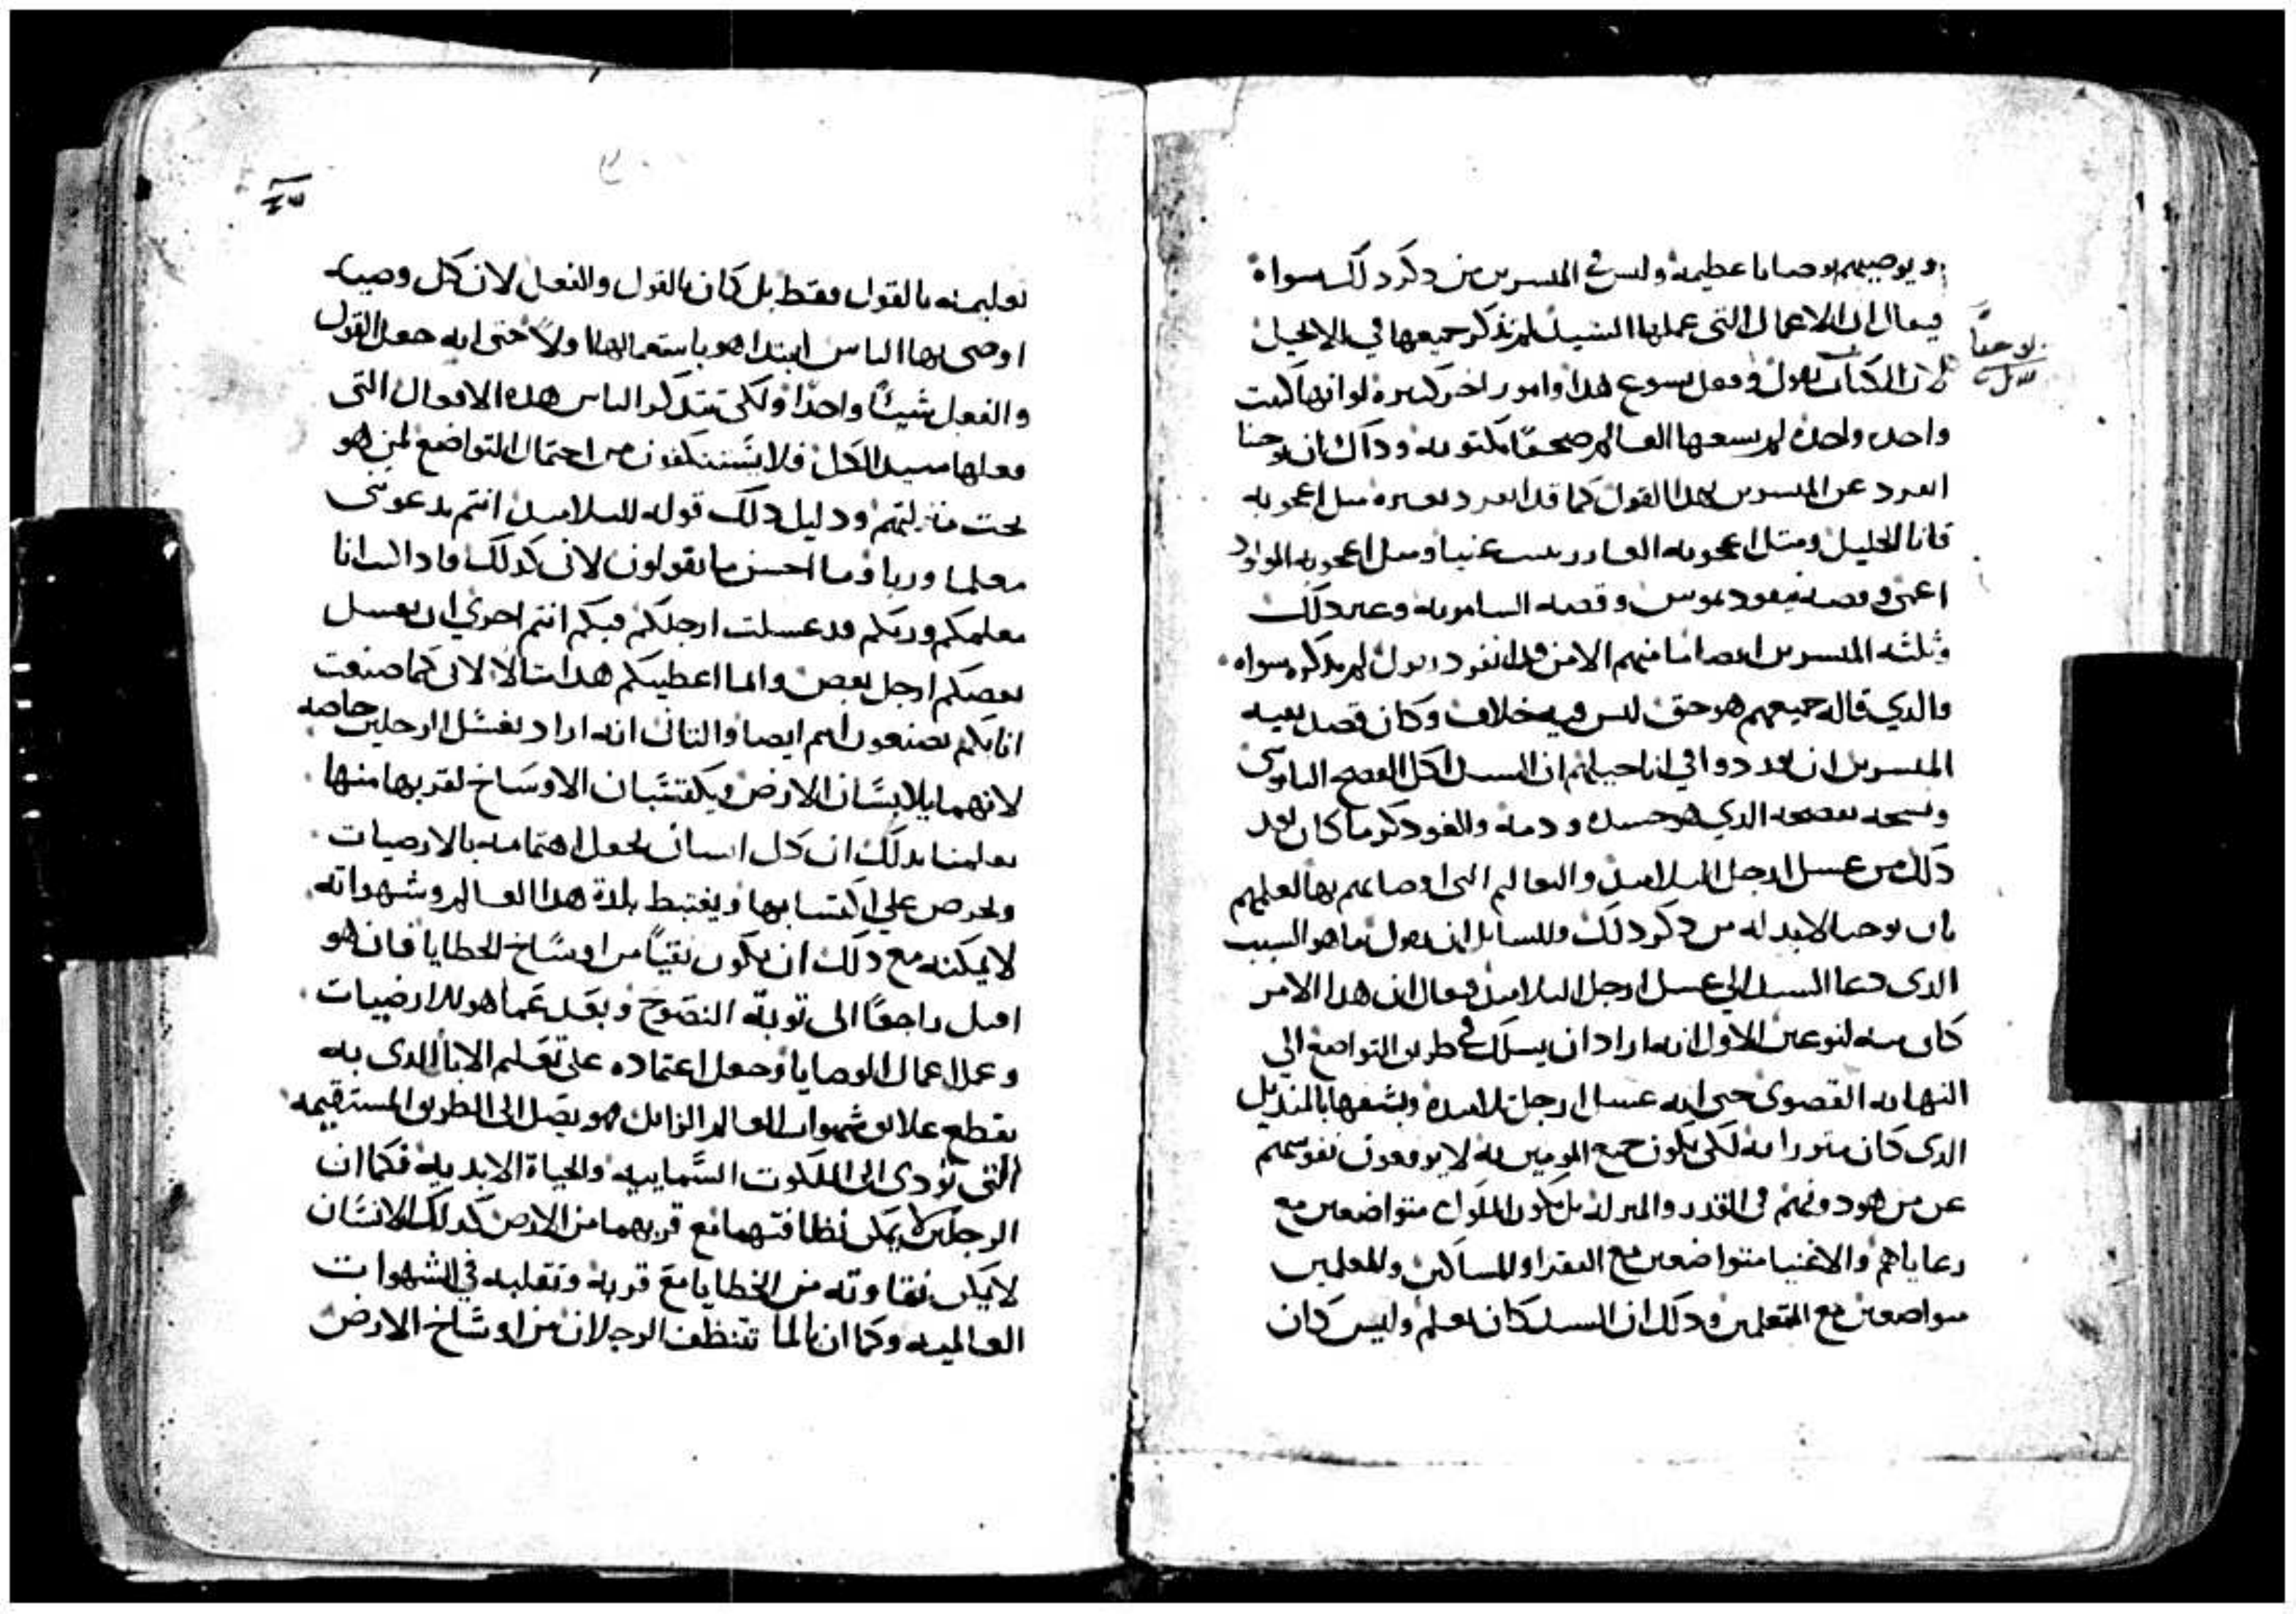 ويوصيهم بوصايا عظيمه وليس في المفسرين من ذكر ذلك سواه
فيقال ان الاعمال التي عملها السيد لم تذكر جميعها في الانجيل
لان الكتاب يقول وفعل يسوع هذا وامور اخر كثيره لو انها كتبت
واحده واحده لم يسعها العالم صحفا مكتوبه وذاك ان يوحنا
انفرد عن المفسرين بهذا القول كما قد انفرد بغيره مثل اعجوبه
قانا الجليل ومثل اعجوبه العازر بيت عنيا ومثل اعجوبه المولود
اعمى وقصه نيقوديموس وقصه السامريه وغير ذلك
وثلثه المفسرين ايضا ما منهم الا من قد انفرد بقول لم يذكره سواه
والذي قاله جميعهم هو حق ليس فيه خلاف وكان قصد بقيه
المفسرين ان يوردوا في اناجيلهم ان السيد اكل الفصح الناموسي
ونسخه بفصحه الذي هو جسده ودمه والغو ذكر ما كان بعد
ذلك من غسل ارجل التلاميذ والتعاليم التي اوصاهم بها لعلمهم
بان يوحنا لابد له من ذكر ذلك وللسايل ان يقول ما هو السبب
الذي دعا السيد الي غسل ارجل التلاميذ فيقال ان هذا الامر
كان منه لنوعين الاول انه اراد ان يسلك في طريق التواضع الي
النهايه القصوى حتى انه غسل ارجل تلاميذه ونشفها بالمنديل
الذي كان متزرا به لكي يكون جميع المومنين به لا يرفعون نفوسهم
عن من هو دونهم في القدر والمنزله بل يكون الملوك متواضعين مع
رعاياهم والاغنيا متواضعين مع الفقرا والمساكين والمعلمين
متواضعين مع المتعلمين وذلك ان السيد كان يعلم وليس كان
يوحنا
تعليمه بالقول فقط بل كان بالقول والفعل لان كل وصيه
اوصى بها الناس ابتدا هو باستعمالها اولا حتى انه جعل القول
والفعل شيئا واحدا ولكي يتذكر الناس هذه الافعال التي
فعلها سيد الكل فلا يستنكفون من احتمال التواضع لمن هو
تحت منزلتهم ودليل ذلك قوله للتلاميذ انتم تدعوني
معلما وربا وما احسن ما تقولون لاني كذلك فاذا كنت انا
معلمكم وربكم قد غسلت ارجلكم فبكم انتم احري ان يغسل
بعضكم ارجل بعض وانما اعطيتكم هذا مثالا لاني كما صنعت
انا بكم تصنعون انتم ايضا والثاني انه اراد بغسل الرجلين خاصه
لانهما يلابسان الارض ويكتسبان الاوساخ لقربهما منها
يعلمنا بذلك ان كل انسان يجعل اهتمامه بالارضيات
ويحرص علي اكتسابها ويغتبط بلذة هذا العالم وشهواته
لا يمكنه مع ذلك ان يكون نقيا من اوساخ الخطايا فان هو
اقبل راجعا الى توبة النصوح وبعد عما هو للارضيات
وعمل اعمال الوصايا وجعل اعتماده على تعليم الابا الذي به
يقطع علايق شهوات العالم الزايل فهو يصل الى الطريق المستقيمه
التي تؤدي الى الملكوت السماييه والحياة الابديه فكما ان
الرجلين لا يمكن نظافتهما مع قربهما من الارض كذلك الانسان
لا يمكن نقاوته من الخطايا مع قربه وتقلبه في الشهوات
العالميه وكما ان بالما تتنظف الرجلان من اوساخ الارض